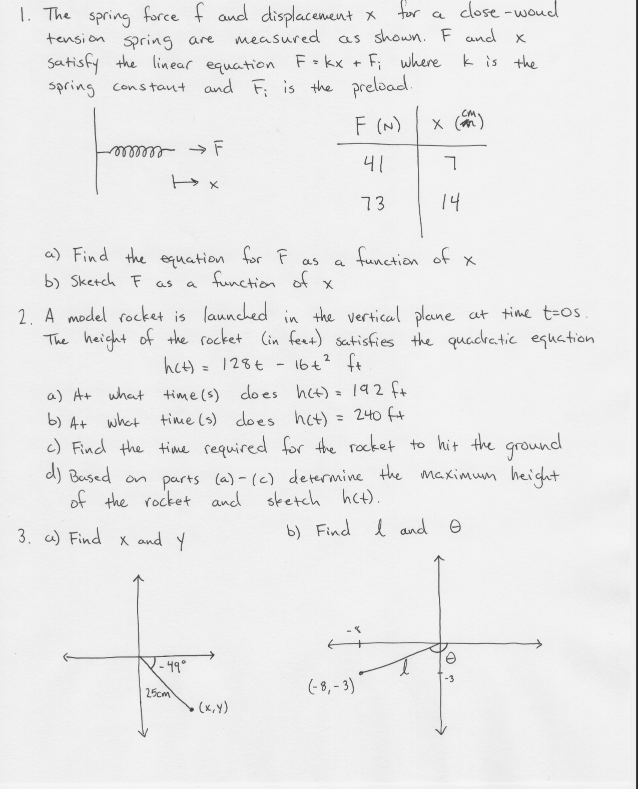 1. The spring force f and displacement x for a close-woud
tension spring are measured as shown. F and x
satisfy the linear equation F = kx + Fi where k is the
spring constant and Fi is the preload.
F (N) x (cm)
→ F
41 7
↦ x
73 14
a) Find the equation for F as a function of x
b) Sketch F as a function of x
2. A model rocket is launched in the vertical plane at time t=0s.
The height of the rocket (in feet) satisfies the quadratic equation
h(t) = 128t - 16t² ft
a) At what time(s) does h(t) = 192 ft
b) At what time(s) does h(t) = 240 ft
c) Find the time required for the rocket to hit the ground
d) Based on parts (a)-(c) determine the maximum height
of the rocket and sketch h(t).
3. a) Find x and y
b) Find l and θ
-49°
25cm
(x,y)
-8
θ
l
-3
(-8,-3)